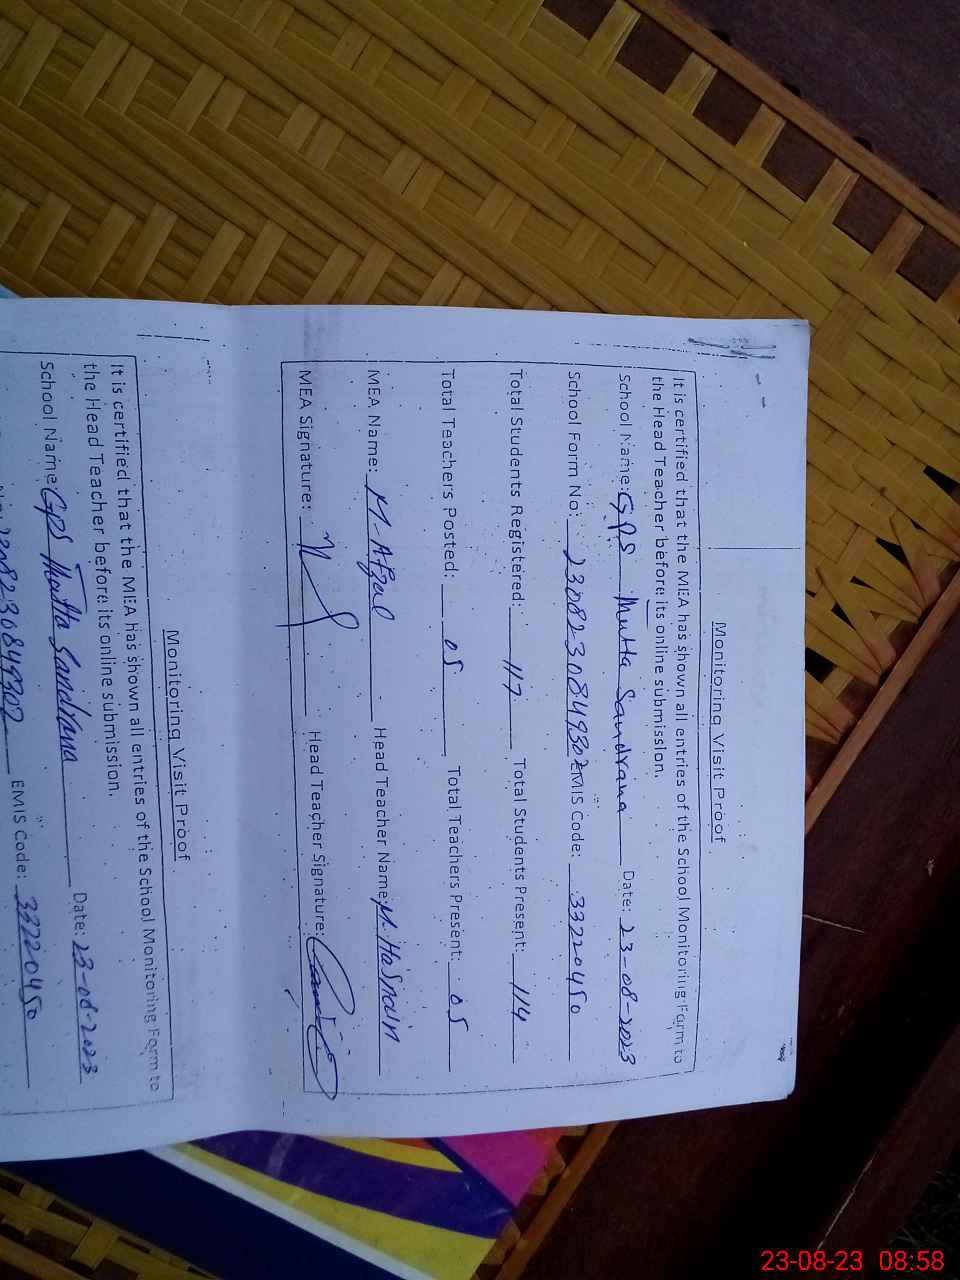 Monitoring Visit Proof
It is certified that the MEA has shown all entries of the School Monitoring Form to
the Head Teacher before its online submission.
School Name: GPS Mutta Sandrana Date: 23-08-2023
School Form No: 2308230849302 EMIS Code: 33220450
Total Students Registered: 117 Total Students Present: 114
Total Teachers Posted: 05 Total Teachers Present: 05
MEA Name: M-Afzal Head Teacher Name: M. Hasnain
MEA Signature: Head Teacher Signature:
Monitoring Visit Proof
It is certified that the MEA has shown all entries of the School Monitoring Form to
the Head Teacher before its online submission.
School Name GPS Thatta Sandrana Date: 23-08-2023
2308230849302 EMIS Code: 33220450
23-08-23 08:58